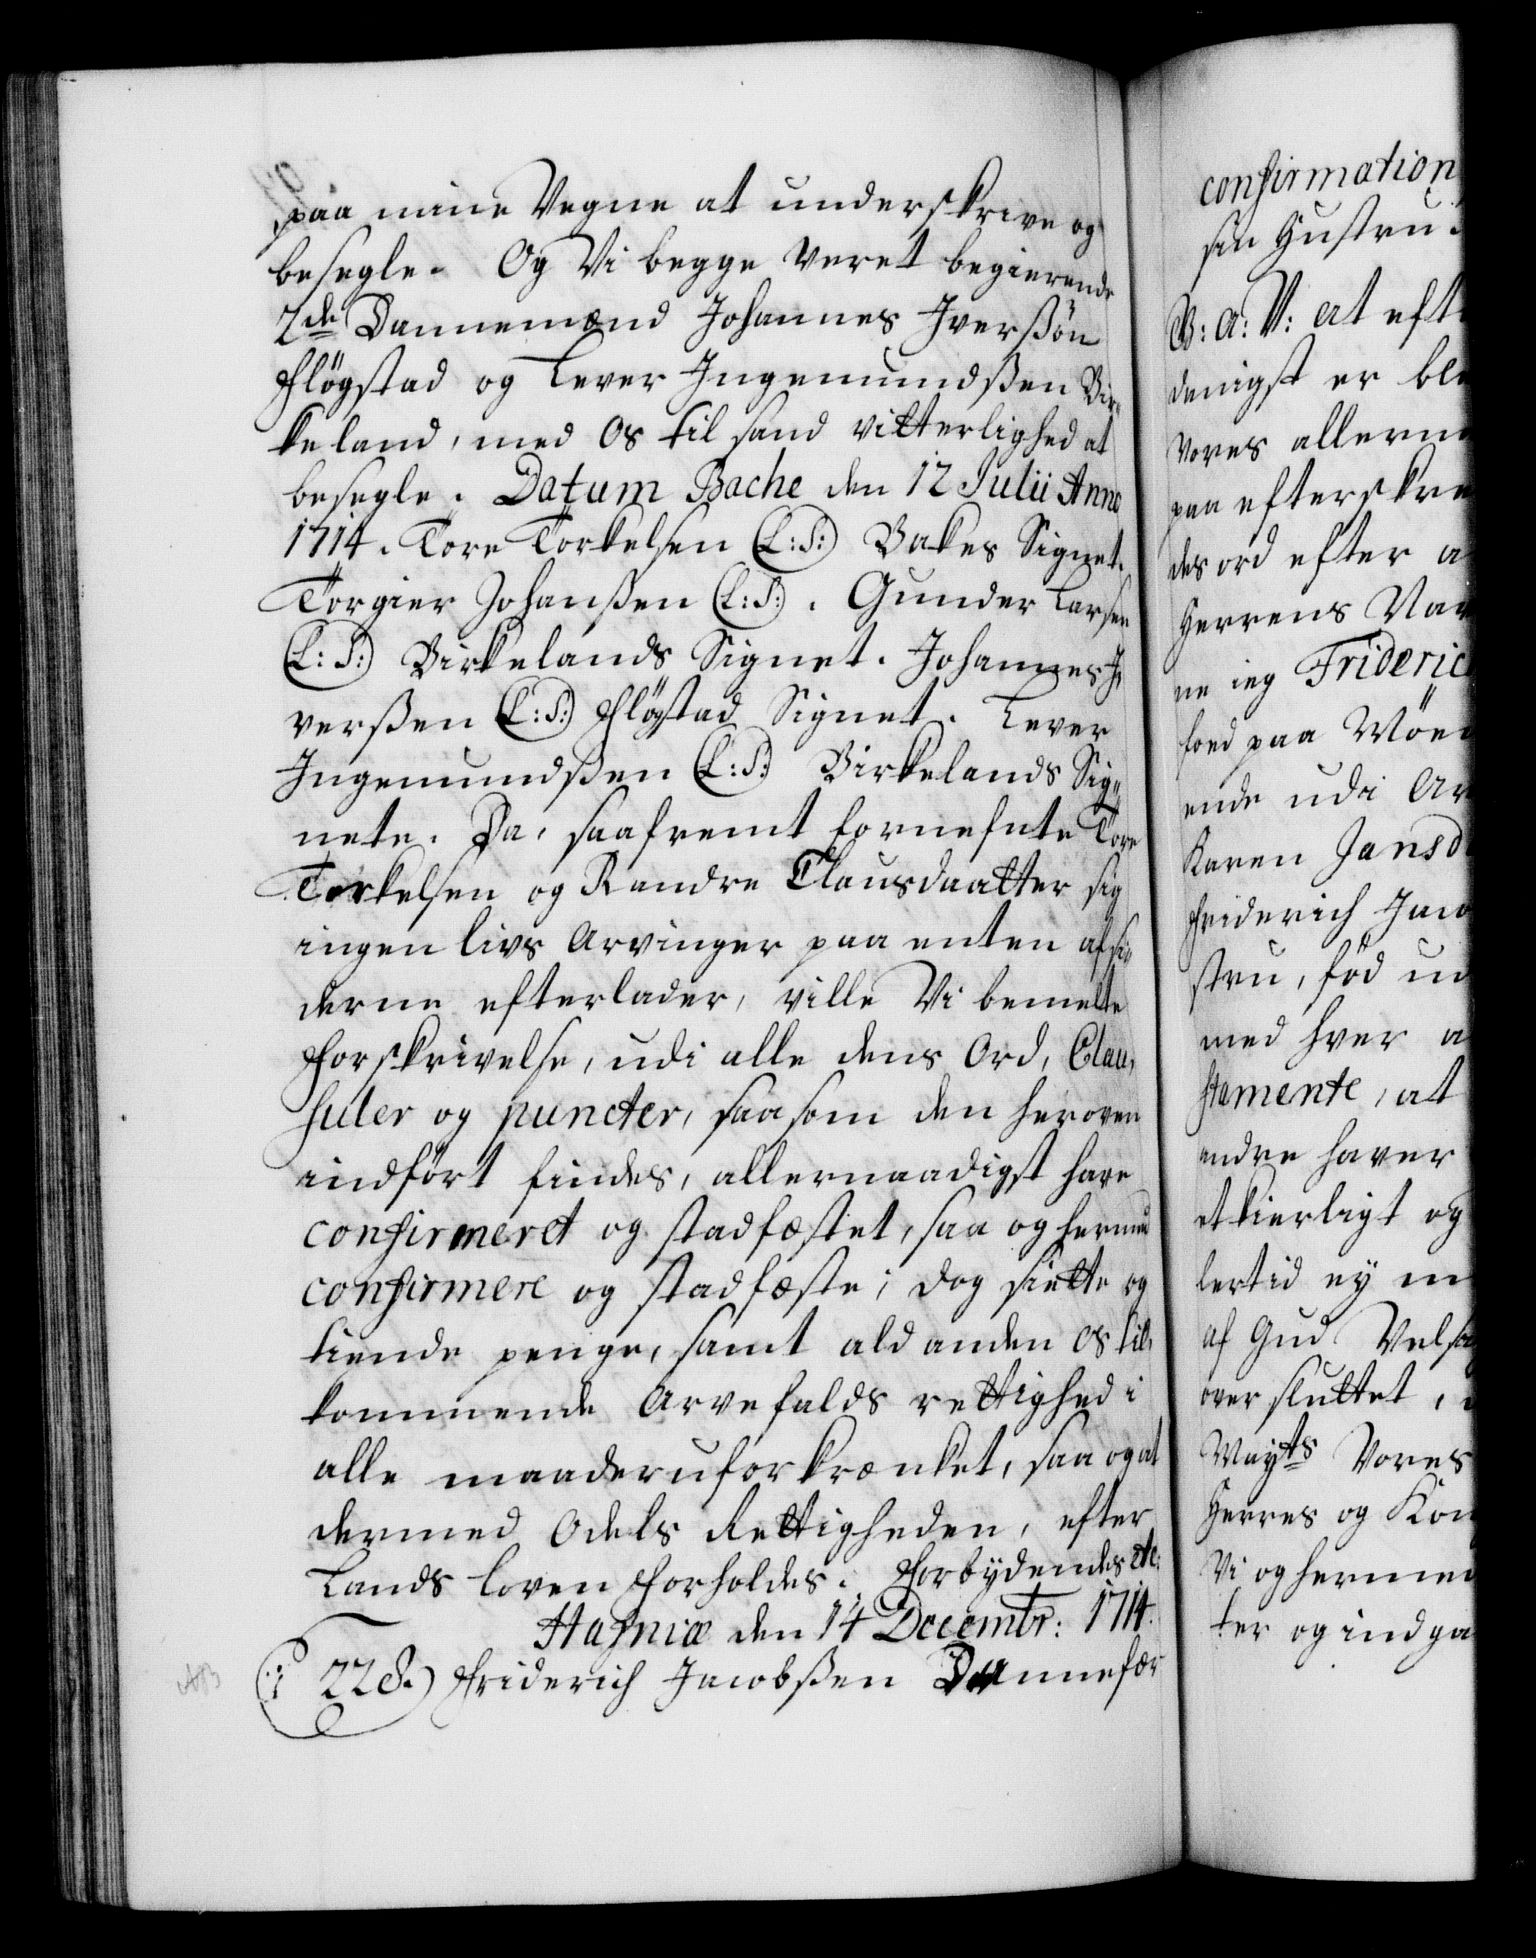 paa mine Vegne at underskrive og
besegle. Og Vi begge Veret begierende
2de Dannemænd Johannes Iverßön
Flögstad og Lever Ingemundßen Bir„
keland, med Os til sand vitterlighed at
besegle. Datum Bache den 12 Julii Anno
1714. Tore Torkelsen (L:S:) Bakes Signet.
Torgier Johanßen (L:S:). Gunder Larsen
(L:S:) Birkelands Signet. Johannes I„
verßen (L:S:) Flögstad Signet. Lever
Ingemundßen (L:S:) Birkelands Sig„
nete. Da, saafremt fornefnte Tore
Torkelsen og Randre Clausdaatter sig
ingen livs Arvinger paa enten afsi„
derne efterlader, ville Vi bemelte
Forskrivelse, udi alle dens Ord, Clau„
suler og puncter, saasom den heroven
indfört findes, allernaadigst have
confirmeret og stadfæstet, saa og hermed
confirmere og stadfæste; dog siette og
tiende penge, samt ald anden Os til„
kommende Arvefalds rettighed i
alle maader uforkrænket, saa og at
dermed Odels Rettigheden, efter
Lands loven forholdes. Forbydendes etc:
Hafniæ den 14 Decembr: 1714.
228.) Friderich Jacobßen Dannefær
confirmation
sin Hustru
V: A: V: At eft
denigst er ble
Vores allern
paa efterskre
des ord efter a
Herrens Nav
ne ieg Frideric
foed paa Möen
ende udi Ar
Karen Jansd
Friderich Jaco
stru, föd ud
med hver a
stamente, at
andre haver
et kierligt og
lertid ey m
af Gud Velsig
over sluttet,
Mayts Vores
Herres og Kon
Vi og hermed
ter og indga